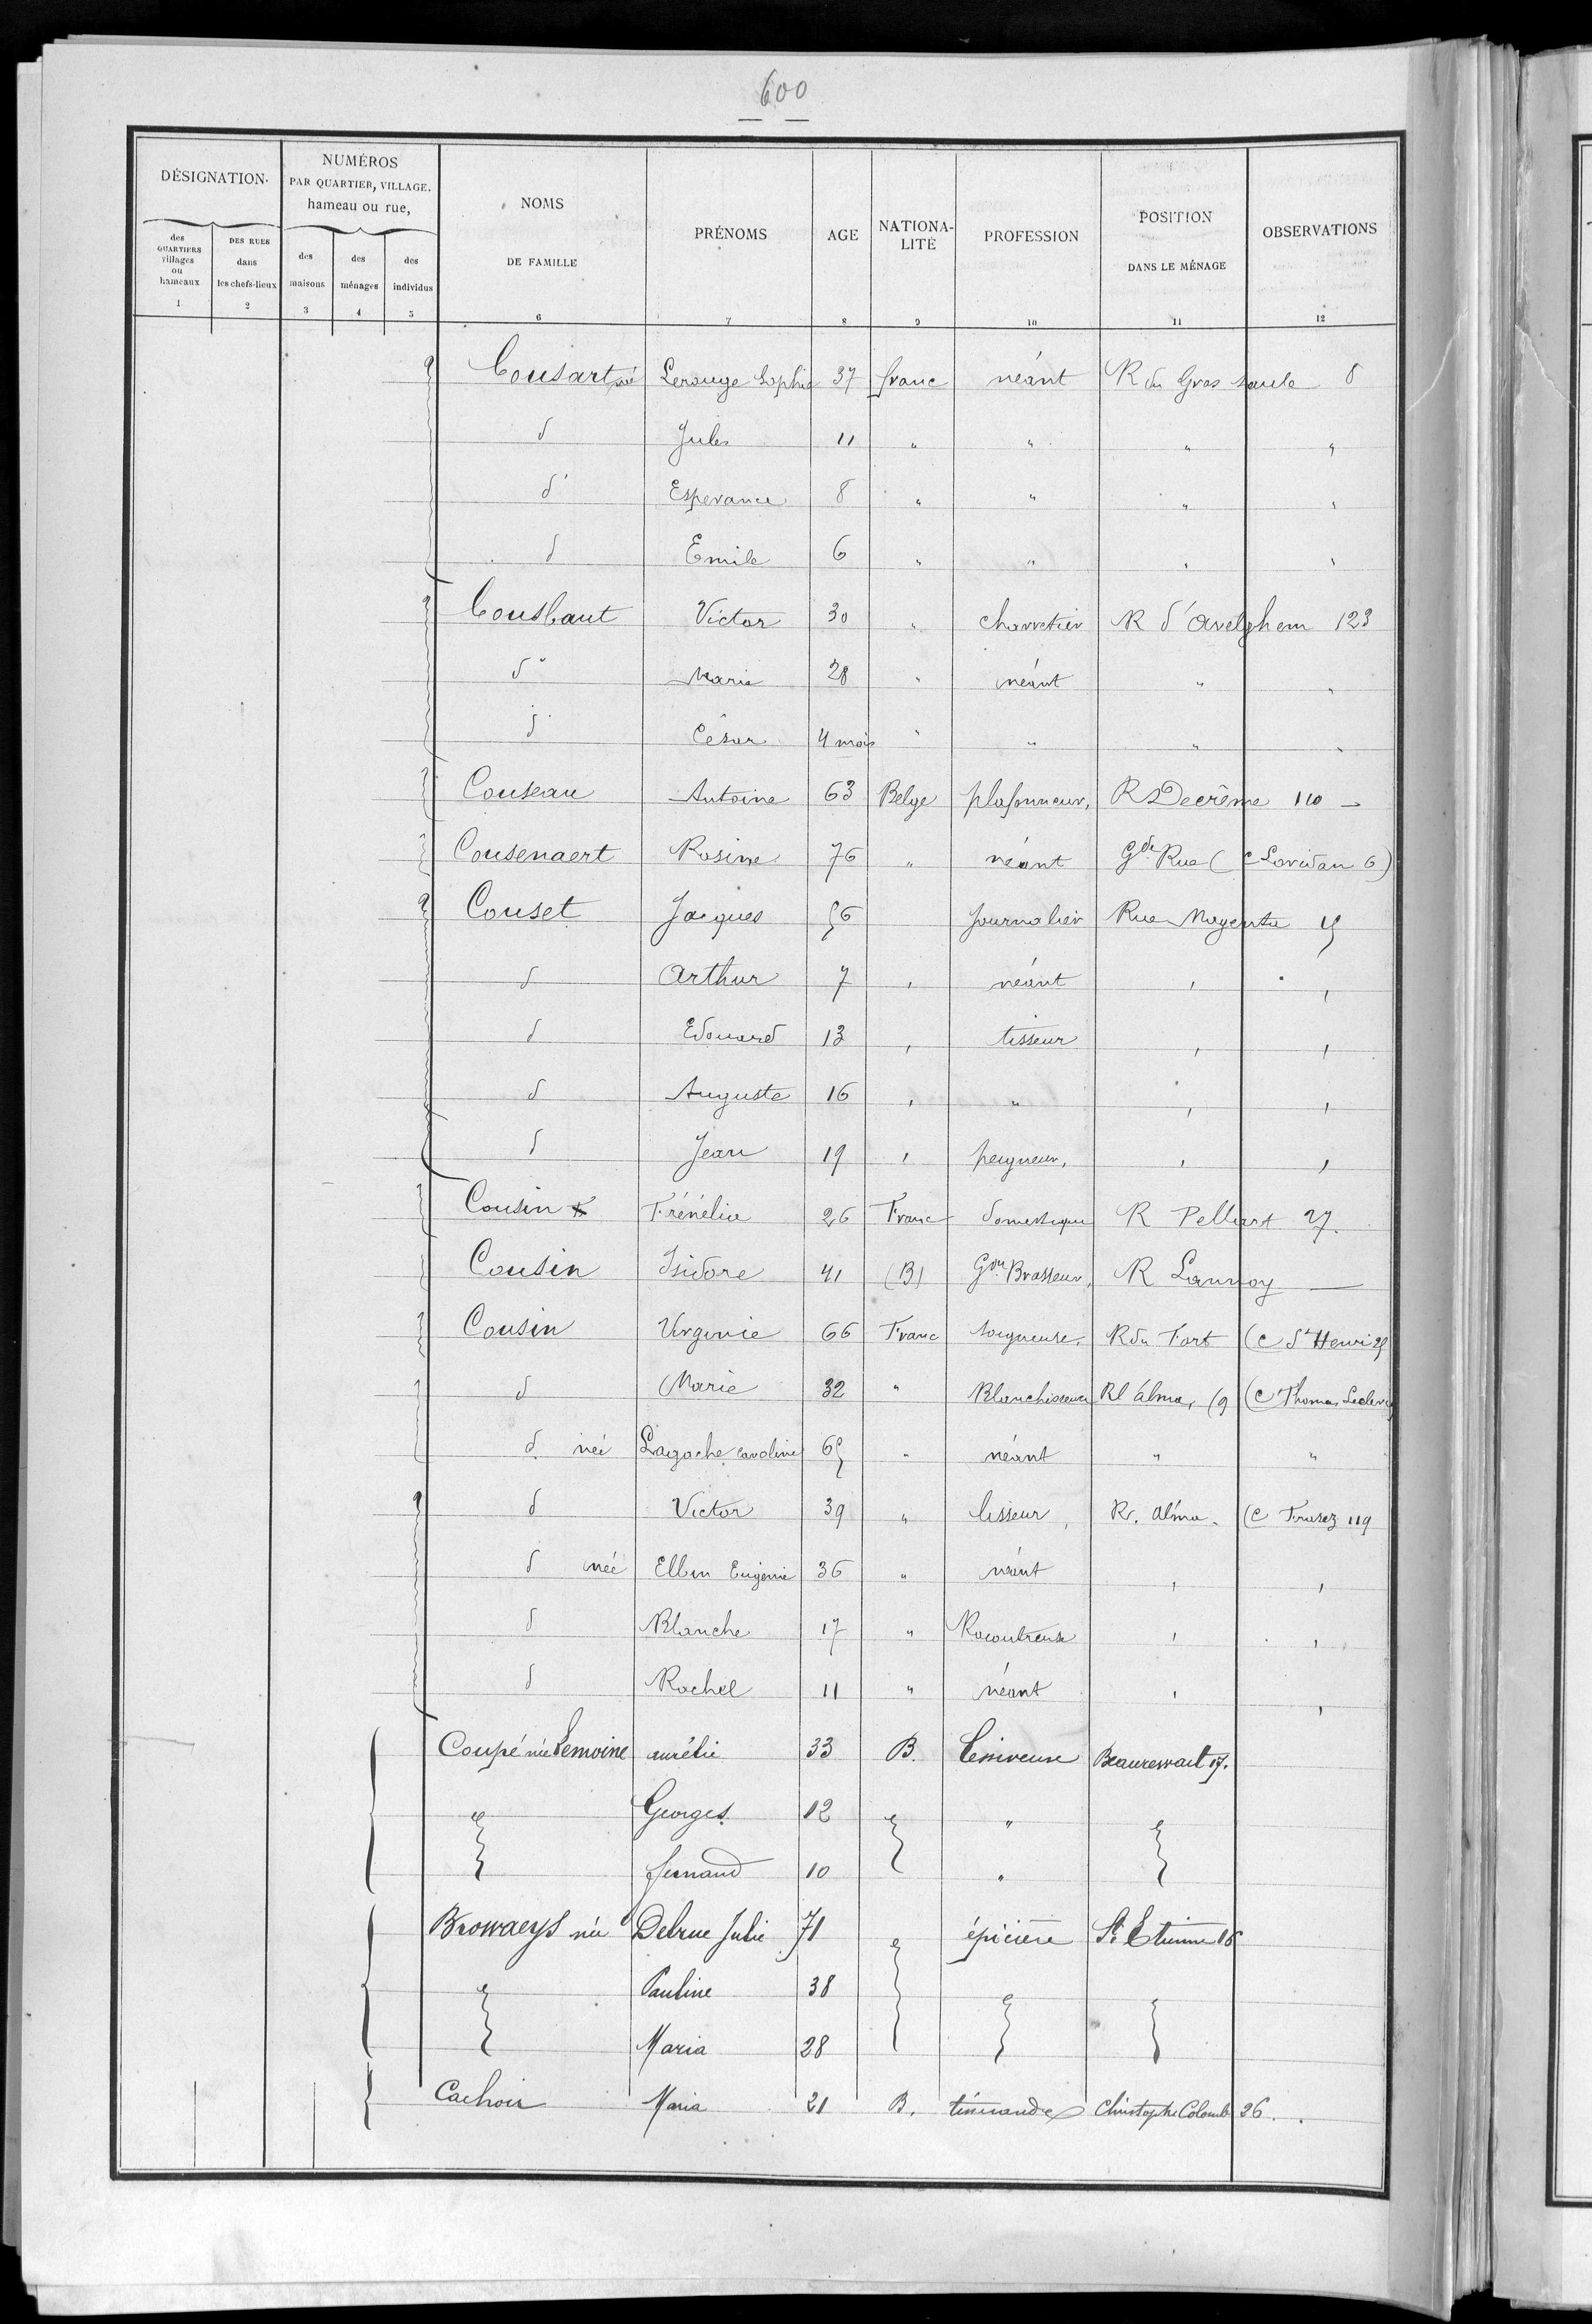 600
DÉSIGNATION.
NUMÉROS
PAR QUARTIER, VILLAGE.
hameau ou rue,
des QUARTIERS villages ou hameaux
DES RUES dans les chefs-lieux
des maisons
des ménages
des individus
NOMS
DE FAMILLE
PRÉNOMS
AGE
NATIONA-
LITÉ
PROFESSION
POSITION
DANS LE MÉNAGE
OBSERVATIONS
1 2 3 4 5 6 7 8 9 10 11 12
Cousart née Lerouge Sophie 37 franc néant R du Gros saule 8
d Jules 11 " " " "
d° Esperance 8 " " " "
d Emile 6 " " " "
Cousbaut Victor 30 " charretier R d'Avelghem 123
d° Marie 28 " néant " "
d° César 4 mois " " " "
Couseau Antoine 63 Belge plafonneur, R Decrême 110 —
Cousenaert Rosine 76 " néant Gde Rue (C Loridan 6)
Couset Jacques 56 Journalier Rue Magenta 15
d Arthur 7 " néant " "
d Edouard 13 " tisseur " "
d Auguste 16 " " " "
d Jean 19 " peigneur, " "
Cousin Frénélie 26 Franc domestique R Pellart 27.
Cousin Isidore 41 (B) Gon Brasseur, R Lannoy —
Cousin Virginie 66 Franc soigneuse. R du Fort (C St Henri 25
d Marie 32 " Blanchisseuse R l'alma, 19 (C Thomas Leclercq
d née Lagache Caroline 65 " néant " "
d Victor 39 " tisseur, R. Alma. (C Frasez 119
d née Ellen Eugenie 36 " néant " "
d Blanche 17 " Racoutreuse " "
d Rachel 11 " néant " "
Coupé née Lemoine aurélie 33 B. Lessiveuse Beaurewart 17.
" Georges. 12 " " "
fernand 10 "
Browaeys née Delrue Julie 71 épicière St. Etienne 16
" Pauline 38 " "
Maria 28
Cachoir Maria 21 B. Christophe Colomb 26.